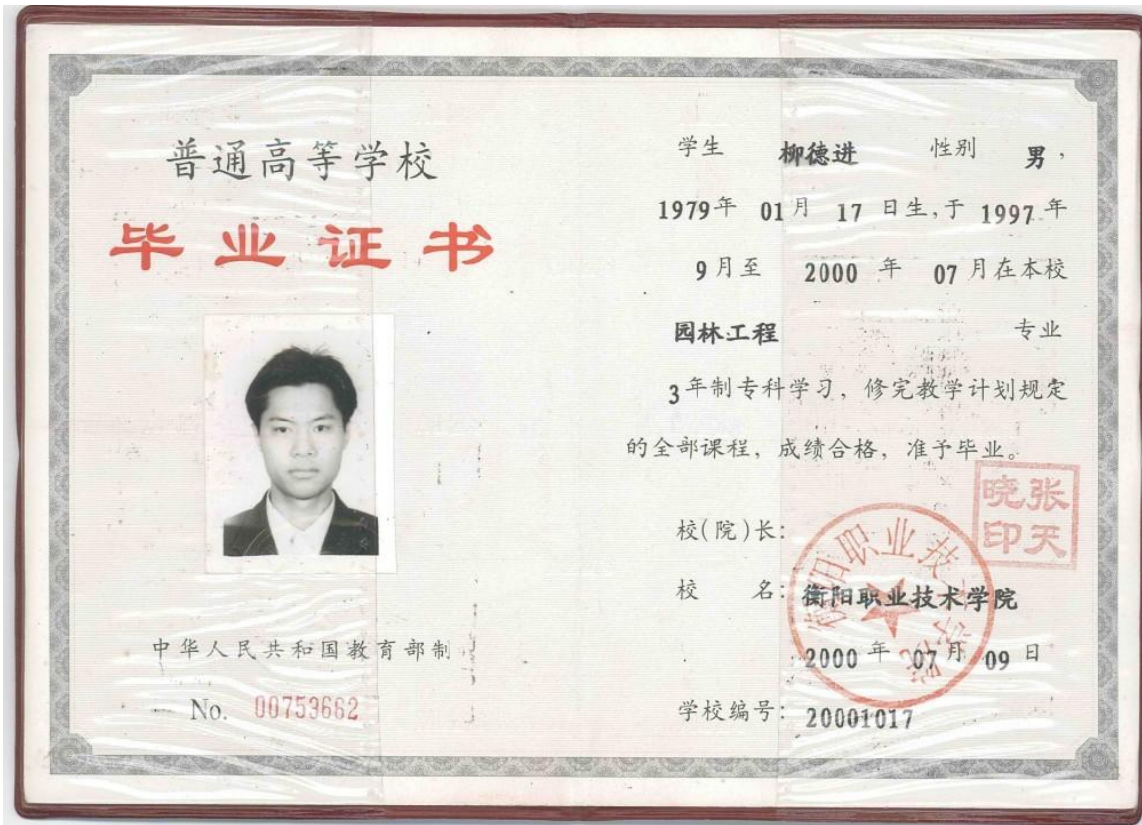 普通高等学校
毕业证书
中华人民共和国教育部制
No. 00753662
学生 柳德进 性别 男,
1979年 01月 17 日生,于 1997 年
9月至 2000 年 07月在本校
园林工程 专业
3年制专科学习,修完教学计划规定
的全部课程,成绩合格,准予毕业。
校(院)长:
张天
晓印
校 名: 衡阳职业技术学院
衡阳职业技术学院
2000 年 07月 09 日
学校编号: 20001017